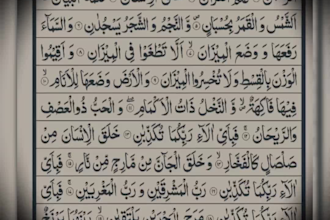 اَلشَّمْسُ وَ الْقَمَرُ بِحُسْبَانٍ ۝ وَّ النَّجْمُ وَ الشَّجَرُ يَسْجُدٰنِ ۝ وَ السَّمَآءَ
رَفَعَهَا وَ وَضَعَ الْمِيْزَانَ ۝ اَلَّا تَطْغَوْا فِي الْمِيْزَانِ ۝ وَ اَقِيْمُوا
الْوَزْنَ بِالْقِسْطِ وَ لَا تُخْسِرُوا الْمِيْزَانَ ۝ وَ الْاَرْضَ وَضَعَهَا لِلْاَنَامِ ۝
فِيْهَا فَاكِهَةٌ وَّ النَّخْلُ ذَاتُ الْاَكْمَامِ ۝ وَ الْحَبُّ ذُو الْعَصْفِ
وَ الرَّيْحَانُ ۝ فَبِاَيِّ اٰلَآءِ رَبِّكُمَا تُكَذِّبٰنِ ۝ خَلَقَ الْاِنْسَانَ مِنْ
صَلْصَالٍ كَالْفَخَّارِ ۝ وَ خَلَقَ الْجَآنَّ مِنْ مَّارِجٍ مِّنْ نَّارٍ ۝ فَبِاَيِّ
اٰلَآءِ رَبِّكُمَا تُكَذِّبٰنِ ۝ رَبُّ الْمَشْرِقَيْنِ وَ رَبُّ الْمَغْرِبَيْنِ ۝ فَبِاَيِّ
اٰلَآءِ رَبِّكُمَا تُكَذِّبٰنِ ۝ مَرَجَ الْبَحْرَيْنِ يَلْتَقِيٰنِ ۝ بَيْنَهُمَا بَرْزَخٌ